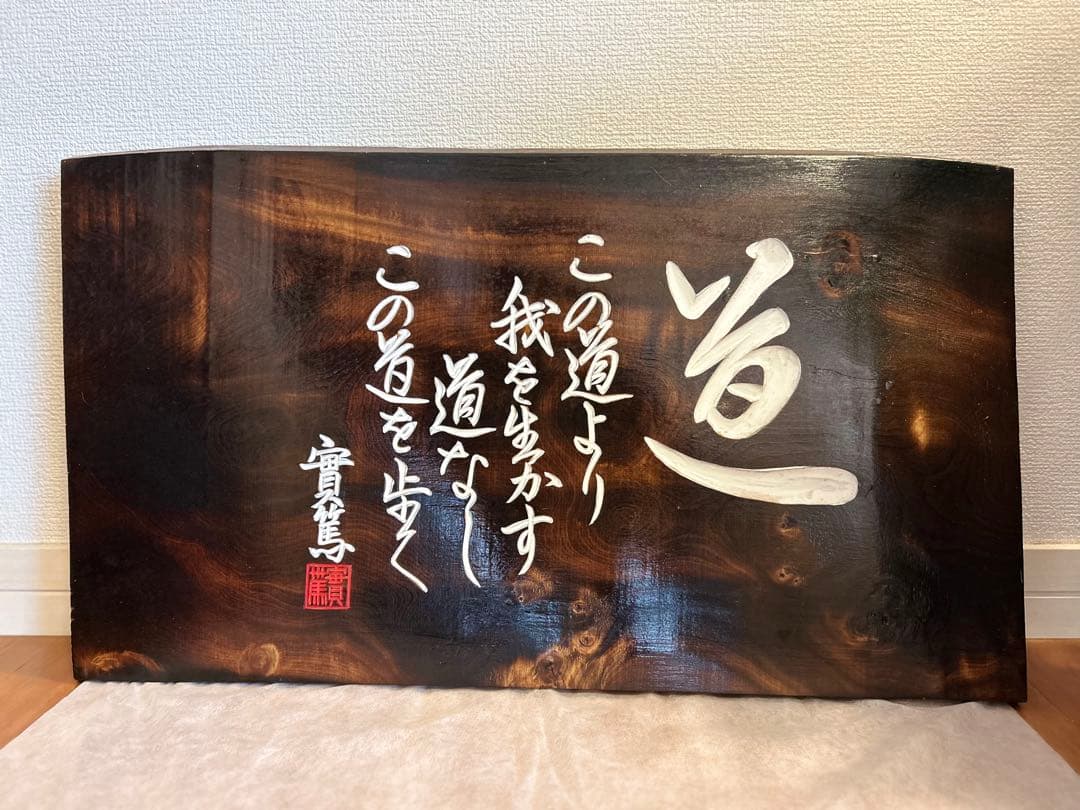 道
この道より
我を生かす
道なし
この道を歩く
實篤
實篤